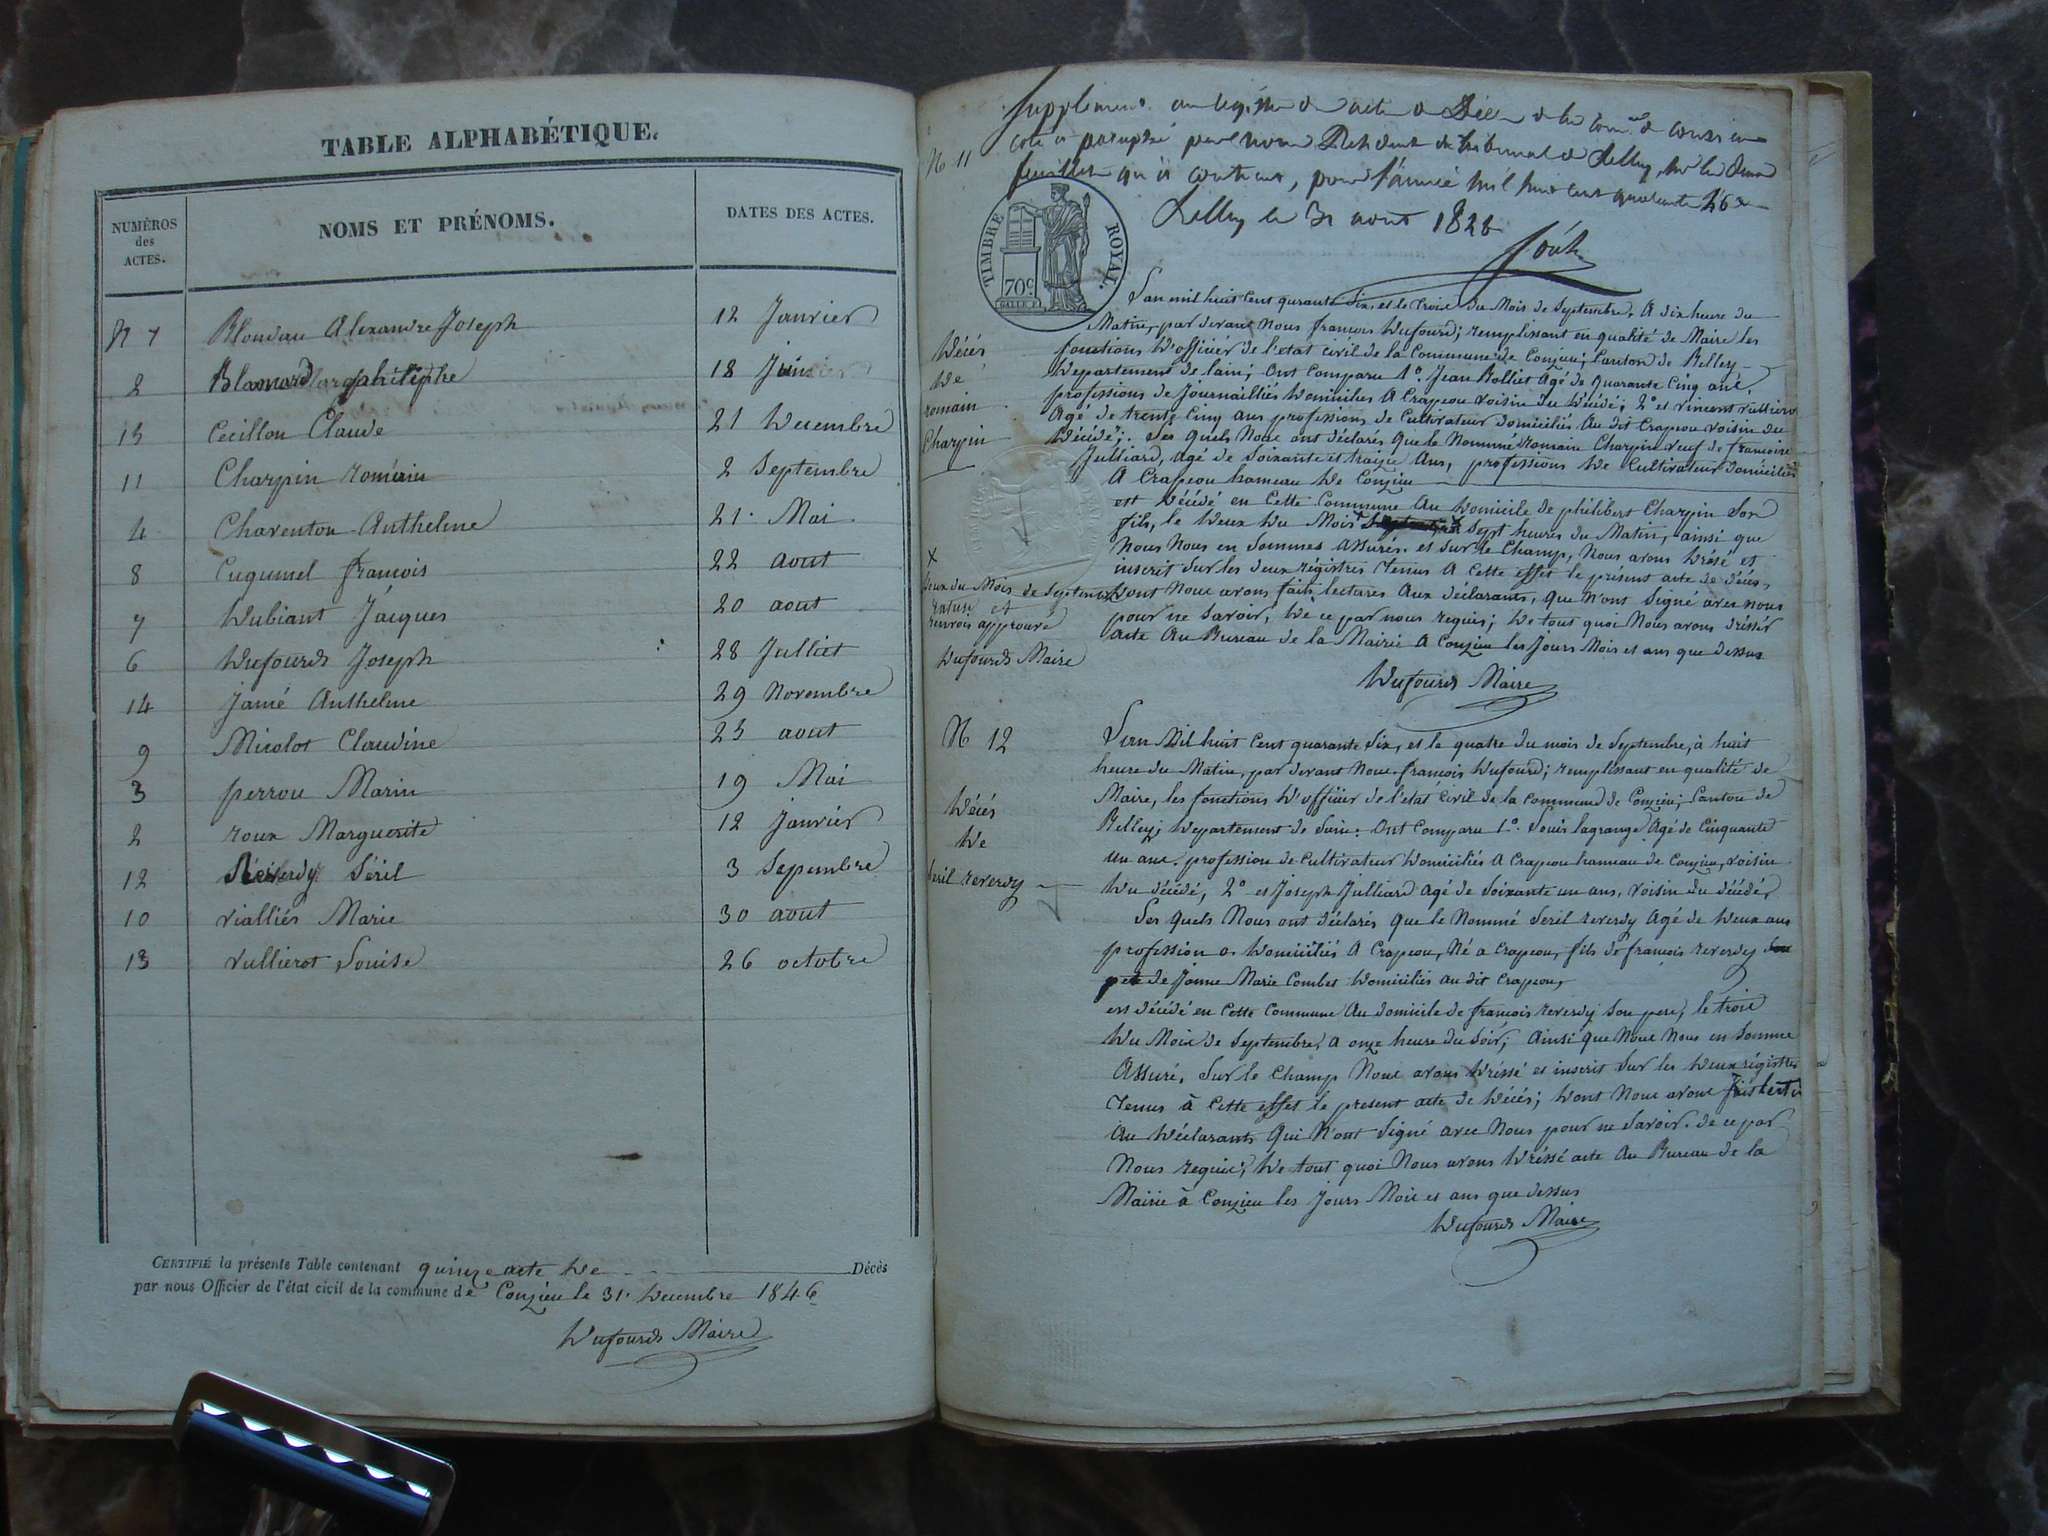 TABLE ALPHABÉTIQUE.
NUMÉROS des ACTES.
NOMS ET PRÉNOMS.
DATES DES ACTES.
Alexandre Joseph 12 Janvier
2 18
15 Cecillon Claude 21 Decembre
11 Charpin romain 2 Septembre
4 Charenton Anthelme 21. Mai
8 francois 22 aout
7 Dubiant Jacques 20 aout
6 Dufourd Joseph 28 Julliet
14 Jamé Anthelme 29 Novembre
9 Micolot Claudine 23 aout
3 perrou Marin 19 Mai
2 roux Marguerite 12 Janvier
12 Reverdy Séril 3 Sepembre
10 vialliés Marie 30 aout
13 vullierot Louise 26 octobre
CERTIFIÉ la présente Table contenant quinze acte de Décès
par nous Officier de l'état cicil de la commune de Conzieu le 31. Decembre 1846
Dufourd Maire
Supplément au registre de
N 11 coté et paraphé par nous Président du tribunal de Belley, sur les
feuillets qu'il contient, pour l'année mil huit cent quarante
Belley le 31 aout
TIMBRE ROYAL.
70c
L'an mil huit Cent qurante Six, et le trois du Mois de Septembre, A dix heure du
Matin, par devant Nous francois Dufourd; remplissant en qualité de Maire les
fonctions D'officiér de l'etat civil de la Commune de Conzieu; Canton de Belley
Departement de lain; Ont Comparu 1º. Jean Rolliet Agé de Quarante Cinq ans,
professions de Journailliés Domiciliés A Crapeou voisin du Décédé; 2º et vincent vulliero
Agé de trente Cinq ans professions de Cultivateur domiciliés Au dit Crapeou voisin du
Décédé;. Les quels Nous ont déclarés Que le Nommé romain Charpin veuf de francoise
Julliard, Agé de Soixante et traize Ans, professions De Cultivateur domiciliés
A Crapeou hameau De Conzieu
est Décédé en Cette Commune Au Domicile de philibert Charpin Son
fils, le Deux Du Mois Sept heures du Matin, ainsi que
Nous Nous en Sommes Assurés. et Sur le Champ, Nous avons Drésé et
inscrit Sur les deux régistres Tenus A Cette effet le présent acte de décés,
Dont Nous avons faits lectures Aux déclarants, Que N'ont Signé avec nous
pour ne Savoir, De ce par nous requis; De tout quoi Nous avons drésér
acte Au Bureau de la Mairie A Conzieu les Jours Mois et ans que dessus
Dufourd Maire
Décés
De
romain
Charpin
x
Deux du Mois de Septembre
rature et
renvois approuvé
Dufourd Maire
N 12
L'an Mil huit Cent quarante Six, et le quatre du mois de Septembre, à huit
heure du Matin, par devant Nous francois Dufourd; remplissant en qualité de
Maire, les fonctions D'officier de l'etat Civil de la Commune de Conzieu; Canton de
Belley; Departement de Lain: Ont Comparu 1º. Louis lagrange Agé de Cinquante
un ans. profession de Cultivateur Domiciliés A Crapeou hameau de Conzieu, voisin
Du décédé, 2º et Joseph Julliard Agé de Soixante un ans, voisin du décédé,
Les quels Nous ont déclarés Que le Nommé Seril reverdy Agé de Deux ans
profession o Domiciliés A Crapeou, Né a Crapeou, fils de françois reverdy
de Janne Marie Combet Domiciliés au dit Crapeou,
est décédé en Cette Commune Au domicile de françois reverdy Son pere, le trois
Du Mois de Septembre, A onze heure du Soir; Ainsi que Nous Nous en Somme
Assuré, Sur le Champ Nous avons Dréssé et inscrit Sur les Deux régistres
Tenus à Cette effet le present acte de Décés; Dont Nous avons
Au Déclarants Qui N'ont Signé avec Nous pour ne Savoir. de ce par
Nous requis; De tout quoi Nous avons Dréssé acte Au Bureau de la
Mairie à Conzieu les Jours Mois et ans que dessus
Dufourd Maire
Décés
De
Seril reverdy